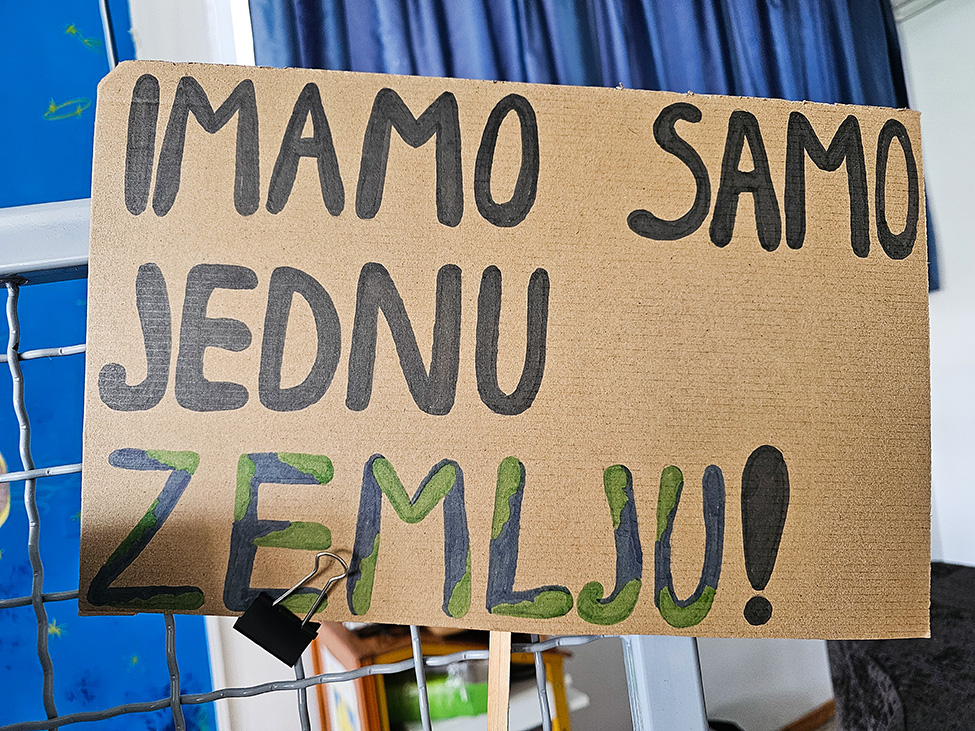 IMAMO SAMO
JEDNU
ZEMLJU!